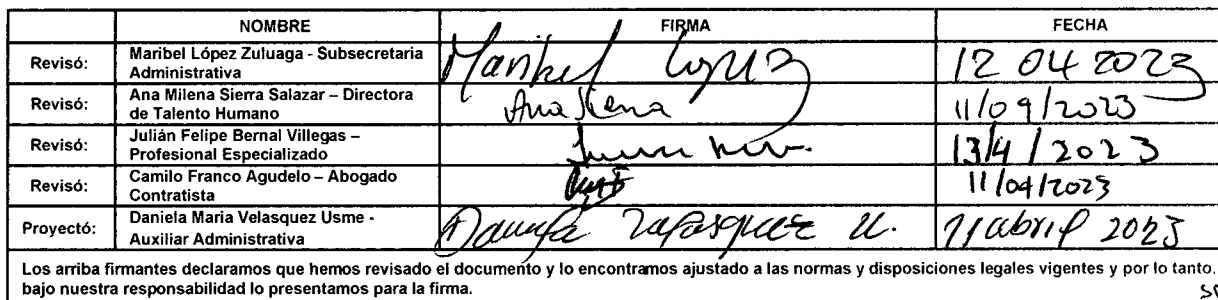 NOMBRE FIRMA FECHA
Revisó: Maribel López Zuluaga - Subsecretaria Administrativa Maribel López 12 04 2023
Revisó: Ana Milena Sierra Salazar – Directora de Talento Humano 11/09/2023
Revisó: Julián Felipe Bernal Villegas – Profesional Especializado 13/4/2023
Revisó: Camilo Franco Agudelo – Abogado Contratista 11/04/2023
Proyectó: Daniela Maria Velasquez Usme - Auxiliar Administrativa Daniela Velasquez U. 11 abril 2023
Los arriba firmantes declaramos que hemos revisado el documento y lo encontramos ajustado a las normas y disposiciones legales vigentes y por lo tanto,
bajo nuestra responsabilidad lo presentamos para la firma.